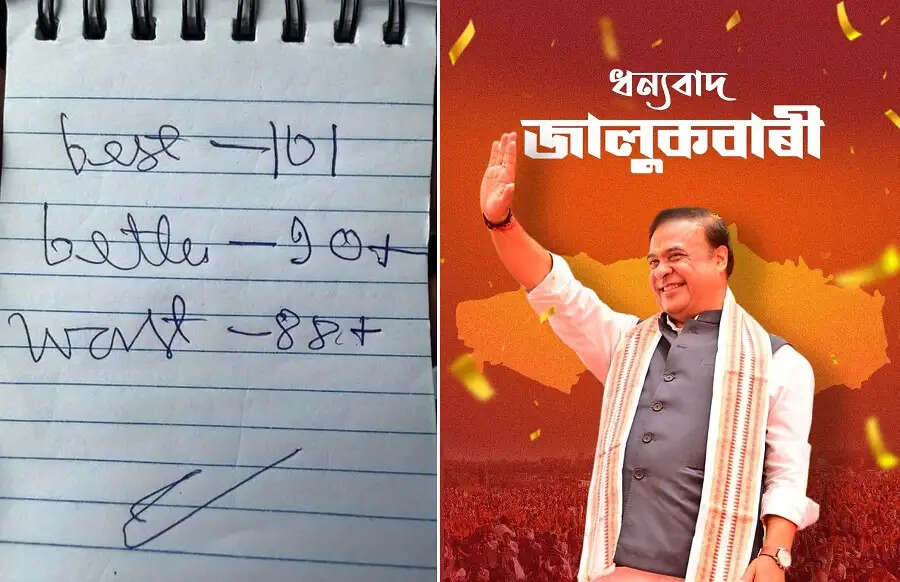 best – 101
better – 90+
worst – 88+
ধন্যবাদ
জালুকবাৰী